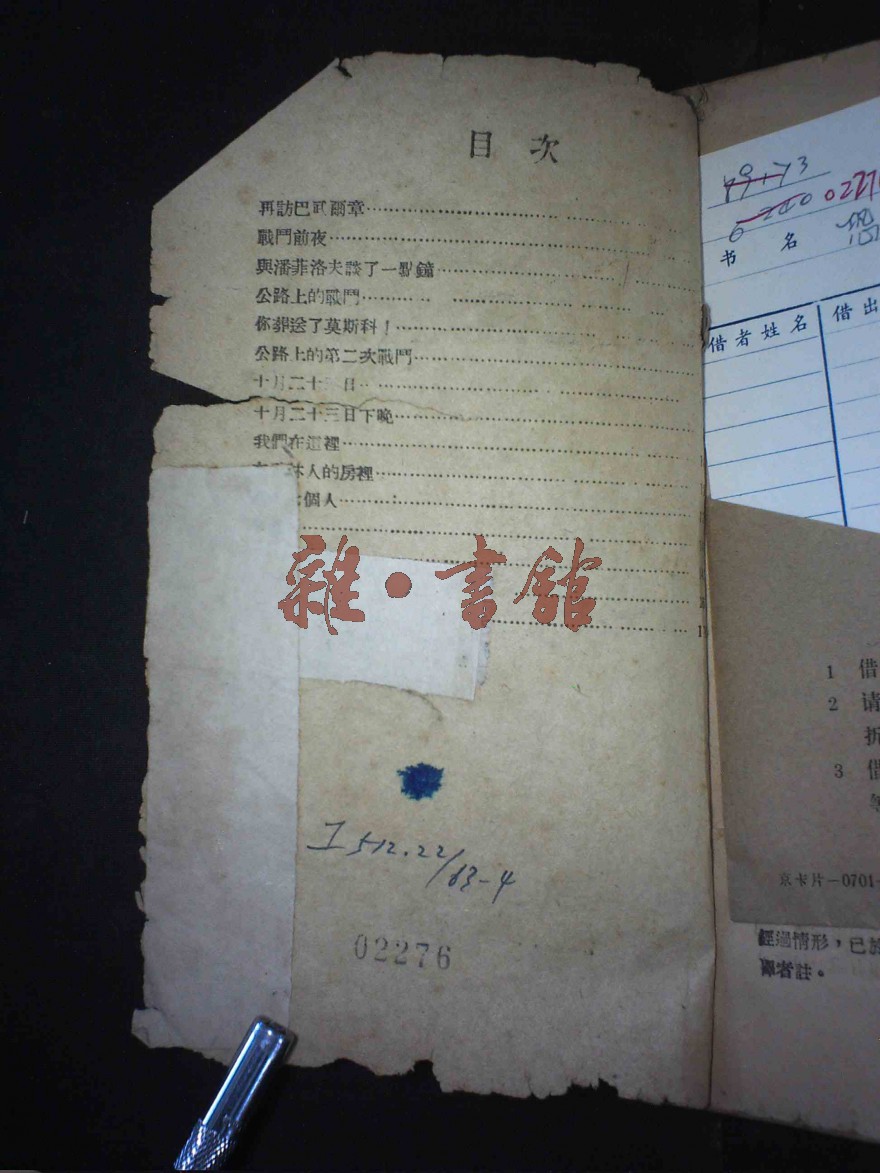 目次
再訪巴武爾章
戰鬥前夜
與潘菲洛夫談了一點鐘
公路上的戰鬥
你葬送了莫斯科!
公路上的第二次戰鬥
十月二十 日
十月二十三日下晚
我們在這裡
林人的房裡
個人
雜·書館
I 512.22/63-4
02276
49+73
0 240 0227
书名
借者姓名 借出
1 借
2 请
折
3 借
京卡片-0701-
經過情形，已於
譯者註。